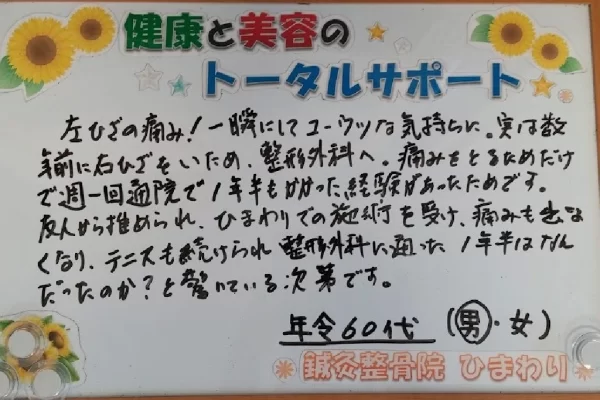 健康と美容の
トータルサポート
左ひざの痛み!一瞬にしてユーウツな気持ちに。実は数
年前に右ひざをいため、整形外科へ。痛みをとるためだけ
で週一回通院で1年半もかかった経験があったためです。
友人から推められ、ひまわりでの施術を受け、痛みも出な
くなり、テニスも続けられ整形外科に通った1年半はなん
だったのか?と驚いている次第です。
年令60代 (男・女)
鍼灸整骨院 ひまわり